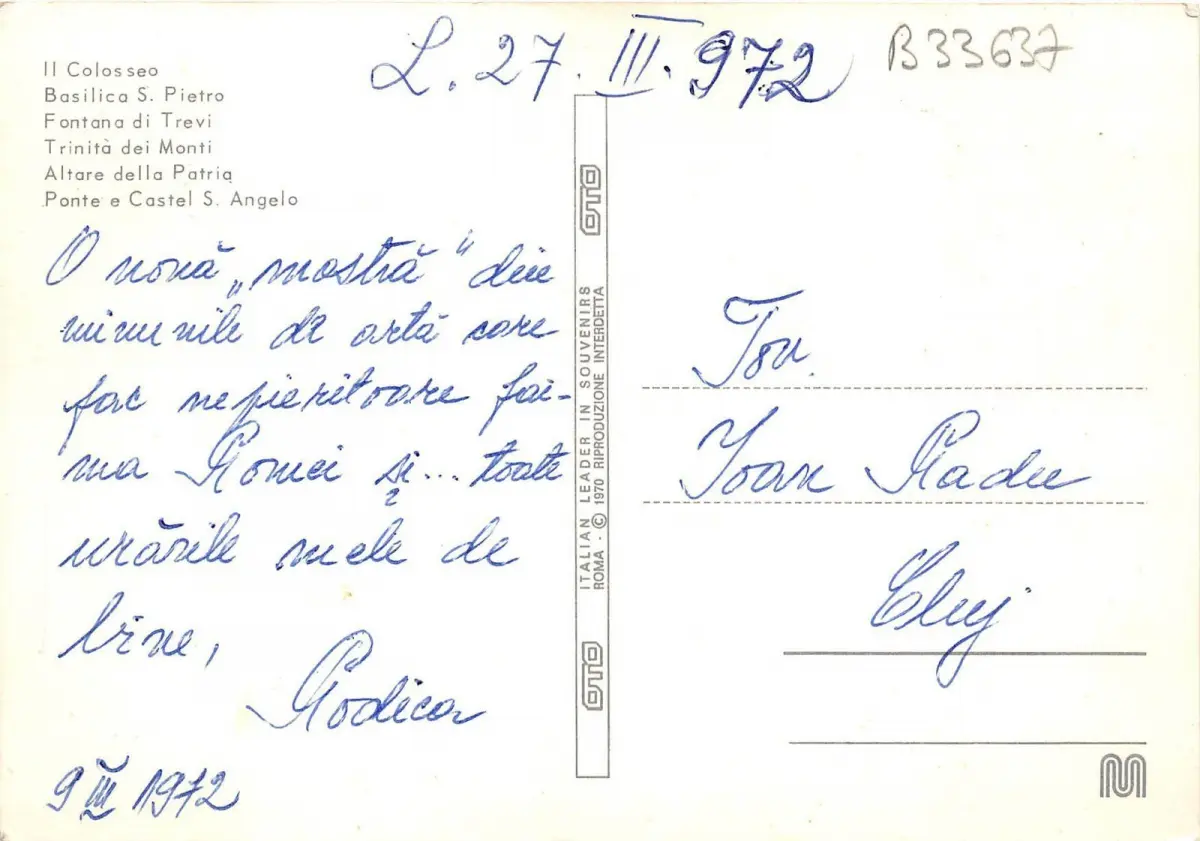 L. 27. III. 972
B33637
Il Colosseo
Basilica S. Pietro
Fontana di Trevi
Trinità dei Monti
Altare della Patria
Ponte e Castel S. Angelo
O nouă „mostră" din
minunile de artă care
fac nepieritoare fai-
ma Romei și... toate
urările mele de
bine,
Rodica
9 III 1972
OTO
ITALIAN LEADER IN SOUVENIRS
ROMA - © 1970 RIPRODUZIONE INTERDETTA
OTO
Tov.
Ioan Radu
Cluj
M